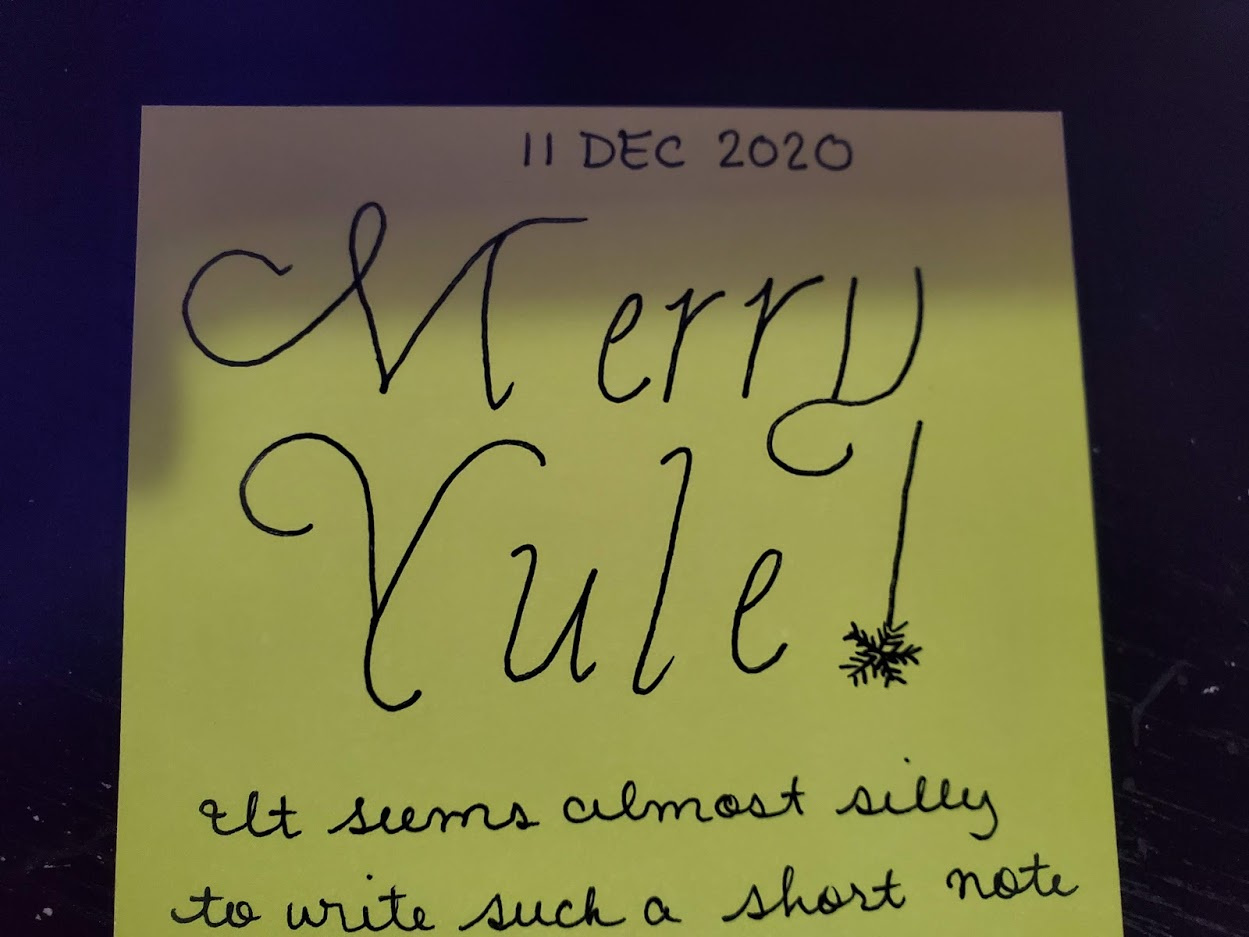 11 DEC 2020
Merry
Yule!
It seems almost silly
to write such a short note